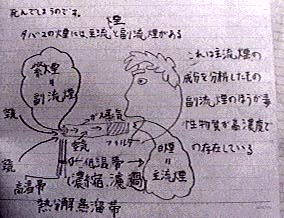 死んでしまうのです。
煙
タバコの煙には、主流と副流煙がある
これは主流煙の
成分を分析したもの
副流煙のほうが毒
性物質が高濃度で
の存在している
紫煙
=
副流煙
蒸気
フィルター
低温帯
(濃縮、濾過)
白煙
=
主流煙
高温帯
熱分解蒸溜帯